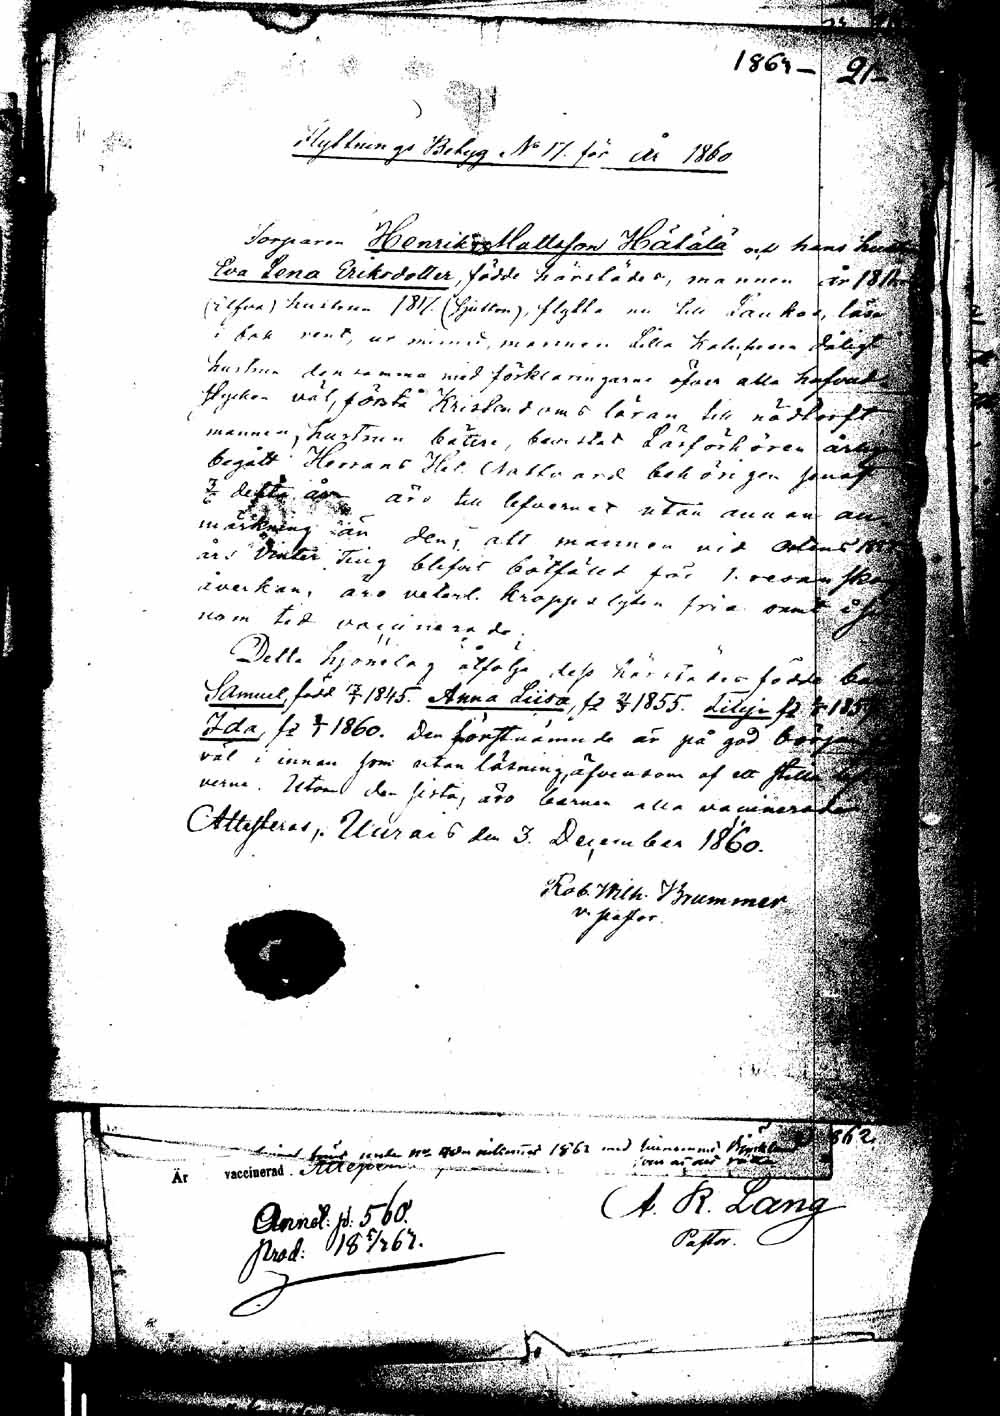 1867 — 21
Flyttnings Betyg No 17. för år 1860
Torparen Henrik Mattsson Hätälä och hans hustru
Eva Lena Eriksdotter, födde härstädes, mannen år 1811
(Elfva) hustrun 1817. (Sjutton), flytta nu till Laukas, läsa
i bok rent, ur minnet, mannen Lilla Katechesen dåligt
hustrun den samma med förklaringarne öfver alla hufvud-
stycken väl, förstå Kristendoms läran till nödtorft
mannen, hustrun bättre, bevistat Läsförhören årligen
begått Herrans Hel. Nattvard behörigen senast
detta år äro till lefvernet utan annan an-
märkning än den, att mannen vid ortens
års Vinter Ting blifvit bötfälld för 1. resan skogs
åverkan, äro veterl. kroppslyten fria samt
nom ted vaccinerade.
Detta hjonelag åtfölja dess härstädes födde barn
Samuel, född 1845. Anna Liisa, fz 1855. fz
Ida, fz 1860. Den förstnämnde är på god början
väl i innan som utan läsning, äfvensom af ett stilla lef-
verne. Utom den sista, äro barnen alla vaccinerade
Attesteras, Uurais den 3. December 1860.
Rob. Wilh. Brummer
v. pastor.
1862
Är vaccinerad
A. R. Lang
Pastor.
Annot: p. 560.
Prod: